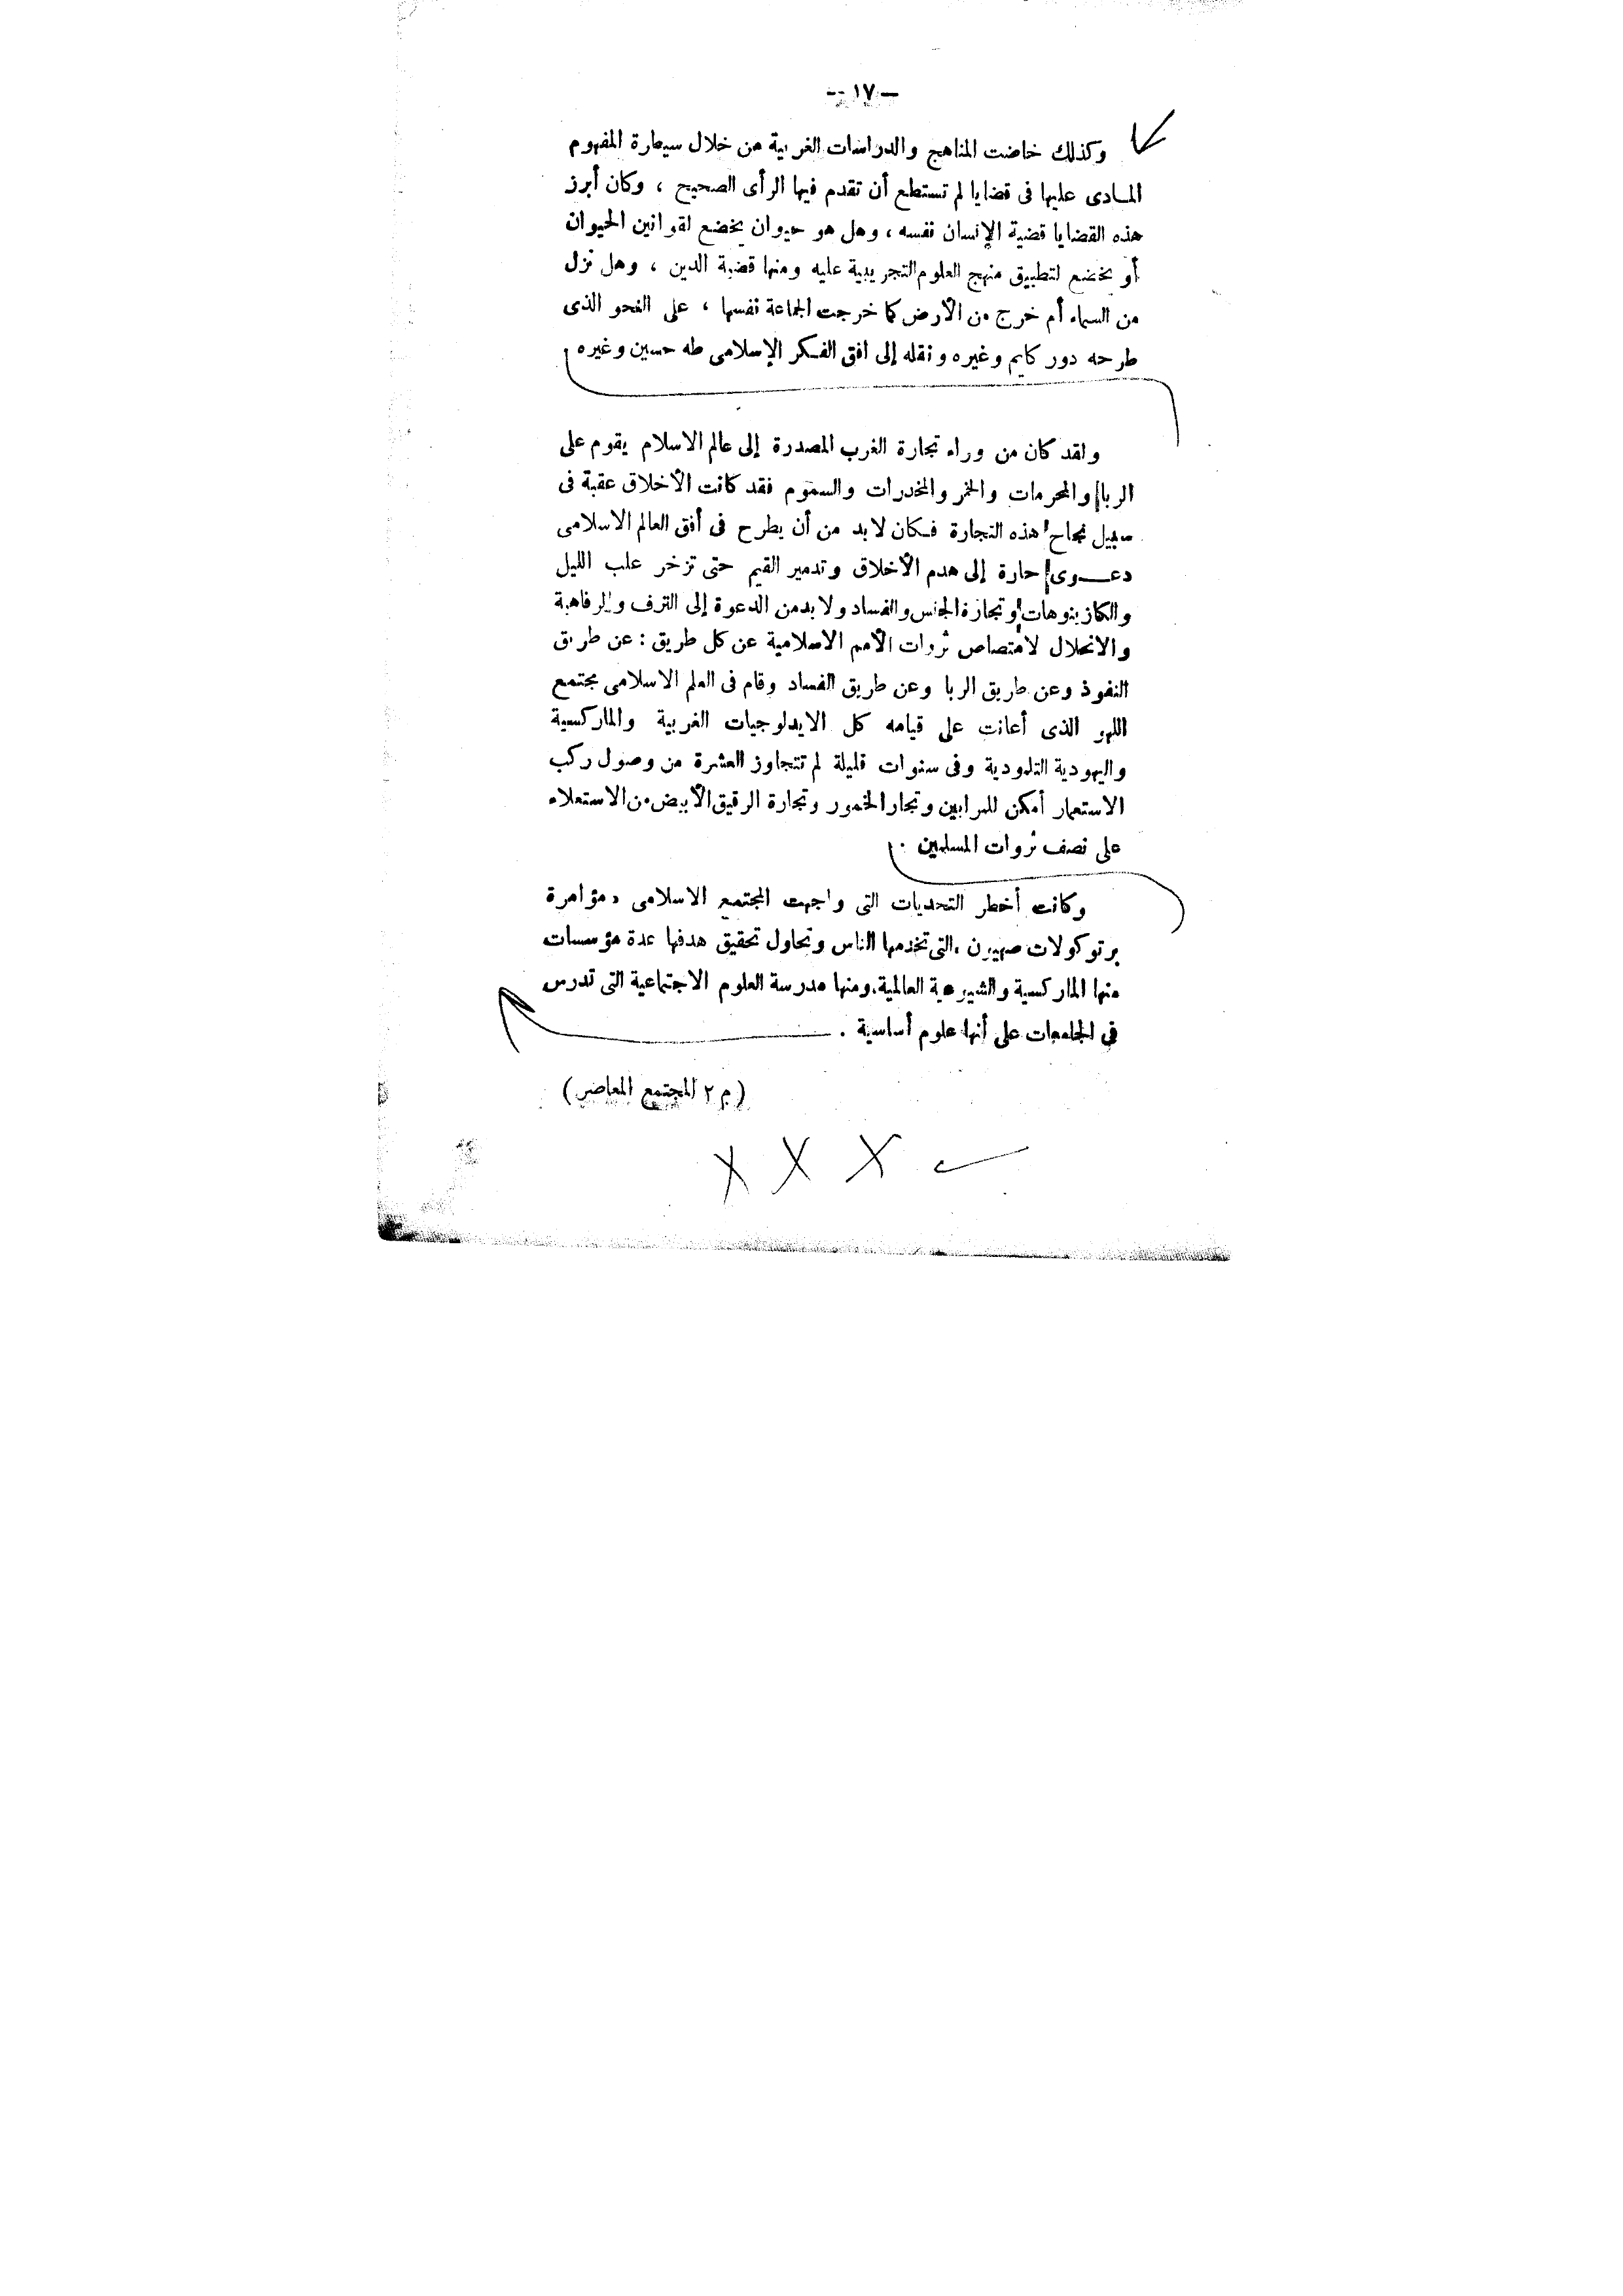 — ١٧ --
وكذلك خاضت المناهج والدراسات الغربية من خلال سيطرة المفهوم
المادى عليها فى قضايا لم تستطع أن تقدم فيها الرأى الصحيح ، وكان أبرز
هذه القضايا قضية الإنسان نفسه ، وهل هو حيوان يخضع لقوانين الحيوان
أو يخضع لتطبيق منهج العلوم التجريبية عليه ومنها قضية الدين ، وهل نزل
من السماء أم خرج من الأرض كما خرجت الجماعة نفسها ، على النحو الذى
طرحه دور كايم وغيره ونقله إلى افق الفكر الإسلامى طه حسين وغيره
ولقد كان من وراء تجارة الغرب المصدرة إلى عالم الاسلام يقوم على
الربا والمحرمات والخمر والمخدرات والسموم فقد كانت الأخلاق عقبة فى
سبيل نجاح هذه التجارة فكان لابد من أن يطرح فى أفق العالم الاسلامى
دعوى حارة إلى هدم الأخلاق وتدمير القيم حتى تزخر علب الليل
والكازينوهات وتجارة الجنس والفساد ولابد من الدعوة إلى الترف والرفاهية
والانحلال لامتصاص ثروات الأمم الاسلامية عن كل طريق : عن طريق
النفوذ وعن طريق الربا وعن طريق الفساد وقام فى العلم الاسلامى مجتمع
اللهو الذى أعانت على قيامه كل الايدلوجيات الغربية والماركسية
واليهودية التلمودية وفى سنوات قليلة لم تتجاوز العشرة من وصول ركب
الاستعمار أمكن للمرابين وتجار الخمور وتجارة الرقيق الأبيض من الاستعلاء
على نصف ثروات المسلمين .
وكانت أخطر التحديات التى واجهت المجتمع الاسلامى ، مؤامرة
برتوكولات صهيون ، التى تخدمها الناس وتحاول تحقيق هدفها عدة مؤسسات
منها الماركسية والشيوعية العالمية . ومنها مدرسة العلوم الاجتماعية التى تدرس
فى الجامعات على أنها علوم أساسية .
(م ٢ المجتمع المعاصر)